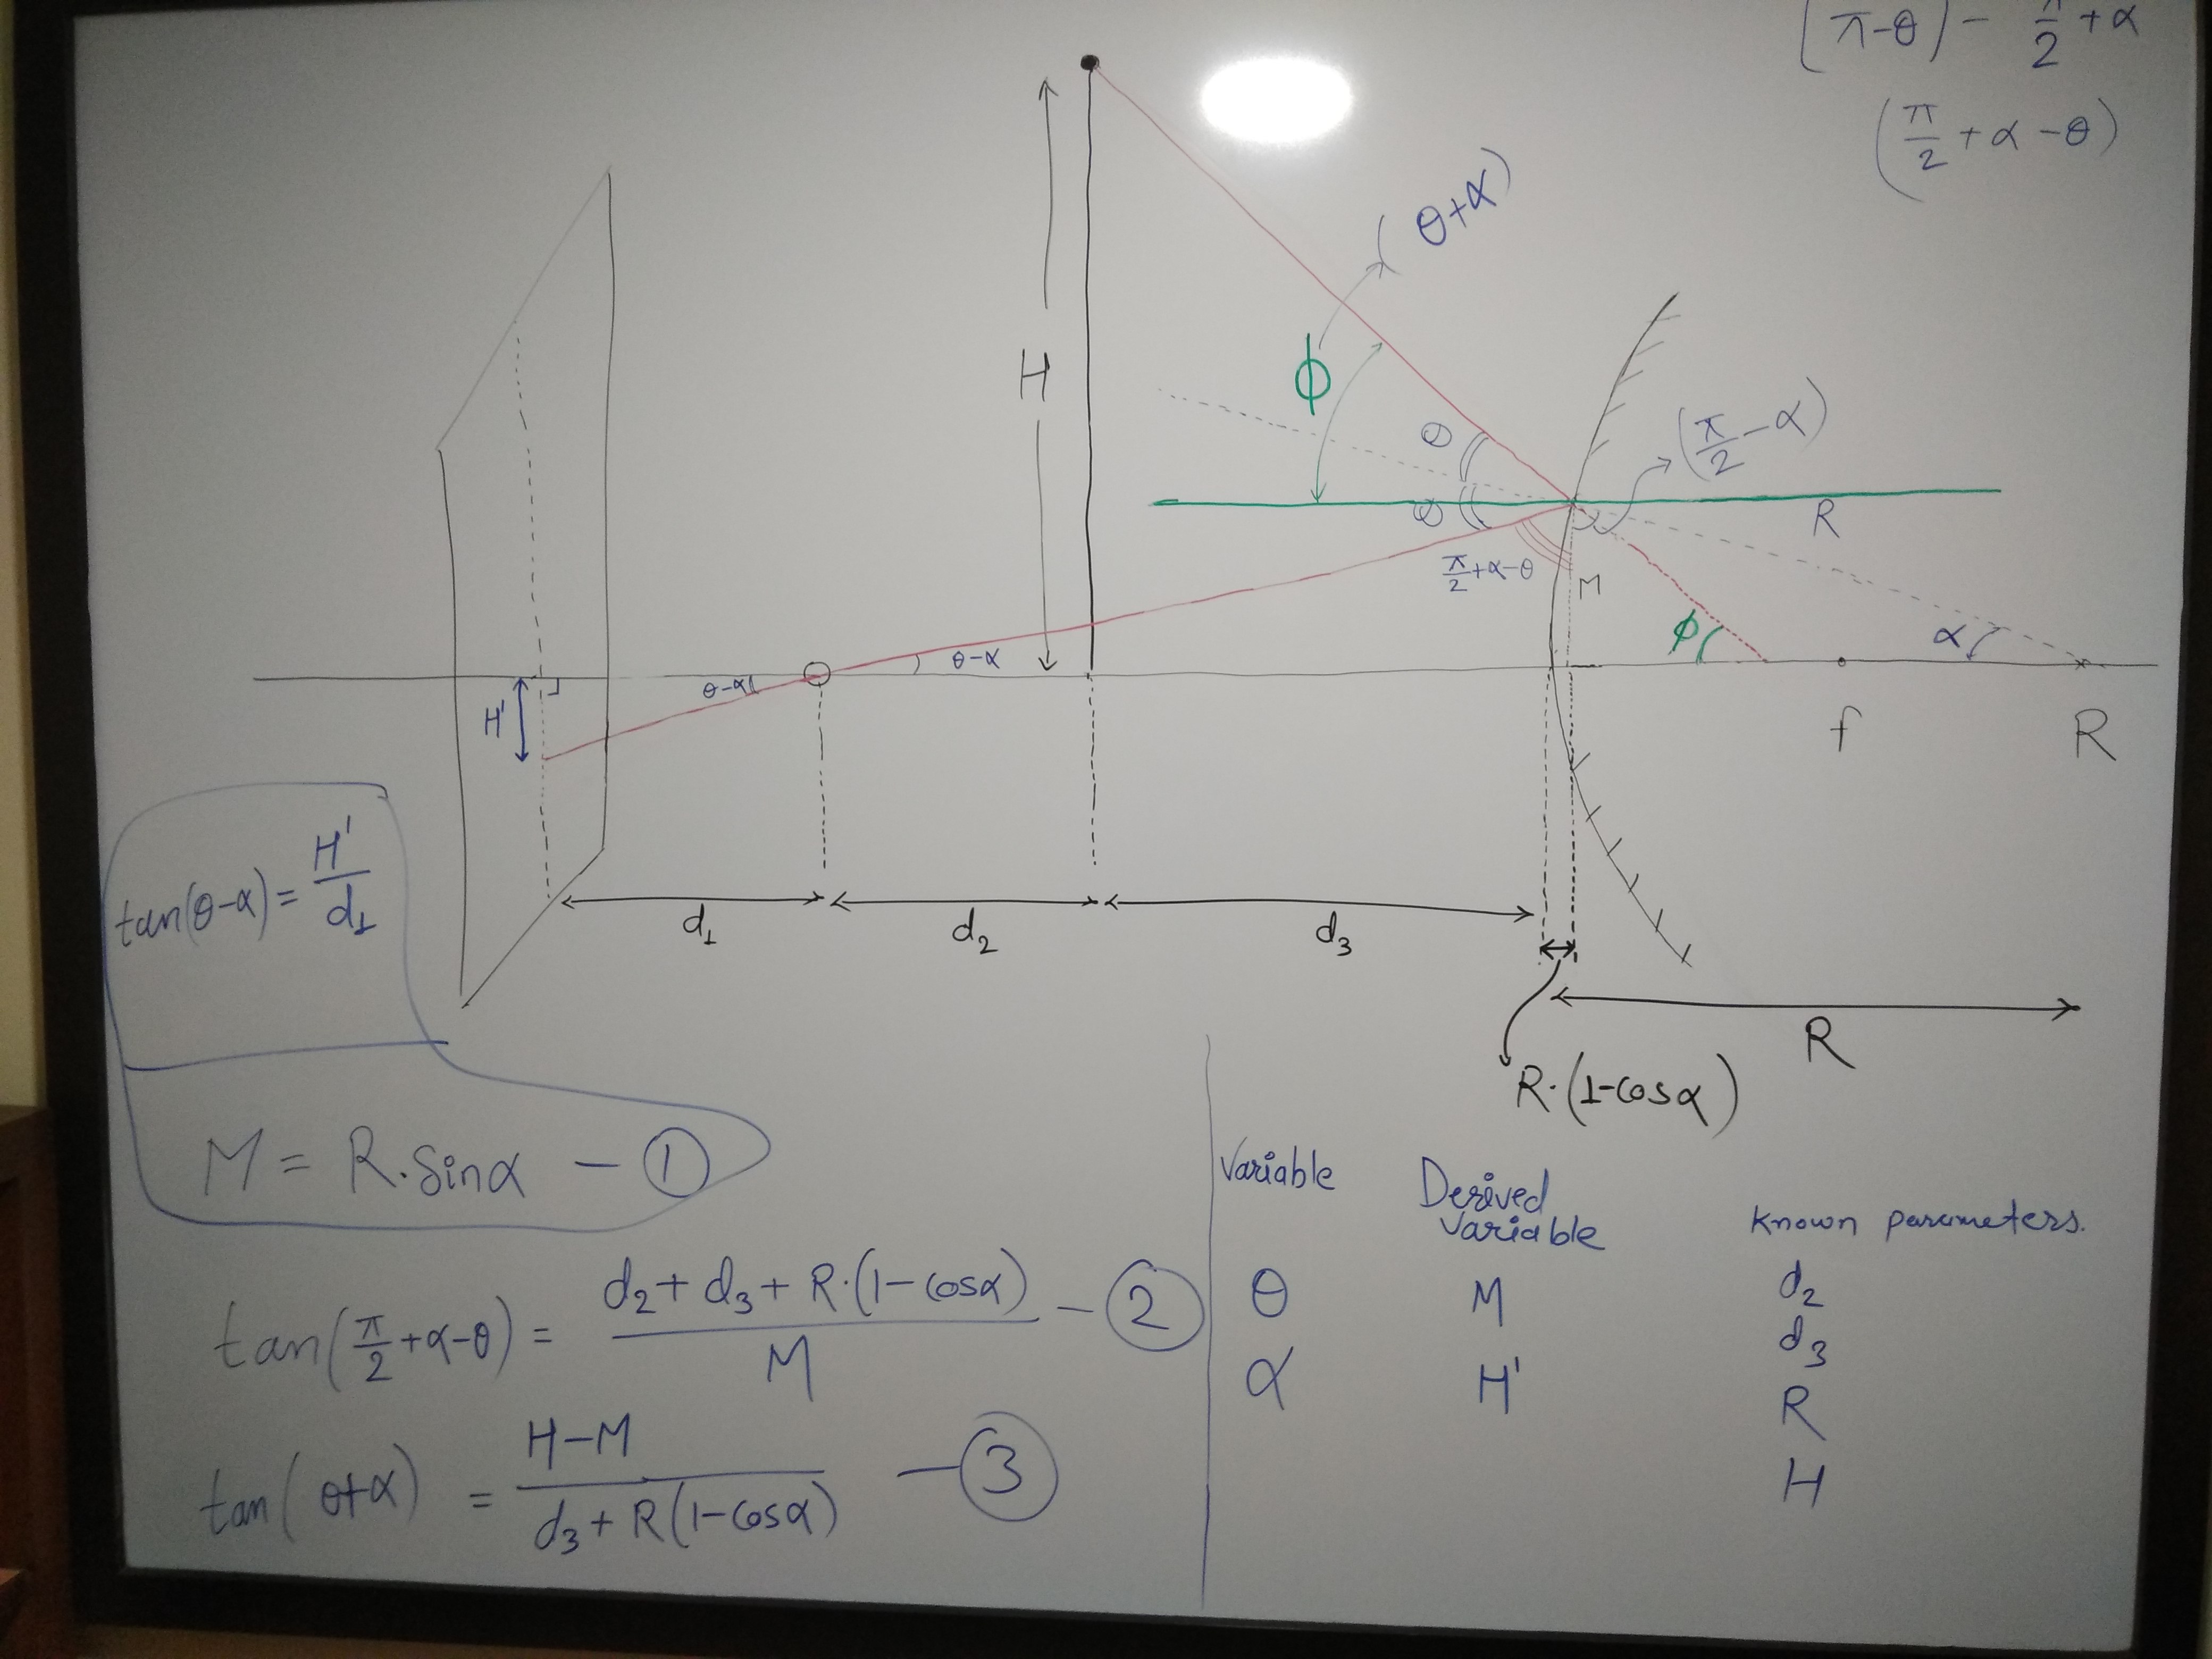 (π-θ) - π/2 + α
(π/2 + α - θ)
(θ+α)
H
ϕ
θ
θ
(π/2 - α)
R
π/2+α-θ
M
ϕ
α
θ-α
θ-α
H'
f
R
d₁
d₂
d₃
R
R·(1-cosα)
tan(θ-α) = H'/d₁
M = R·Sinα - ①
tan(π/2+α-θ) = (d₂ + d₃ + R·(1-cosα))/M - ②
tan(θ+α) = (H-M)/(d₃ + R(1-cosα)) - ③
Variable Derived Variable Known parameters.
θ M d₂
d₃
α H' R
H